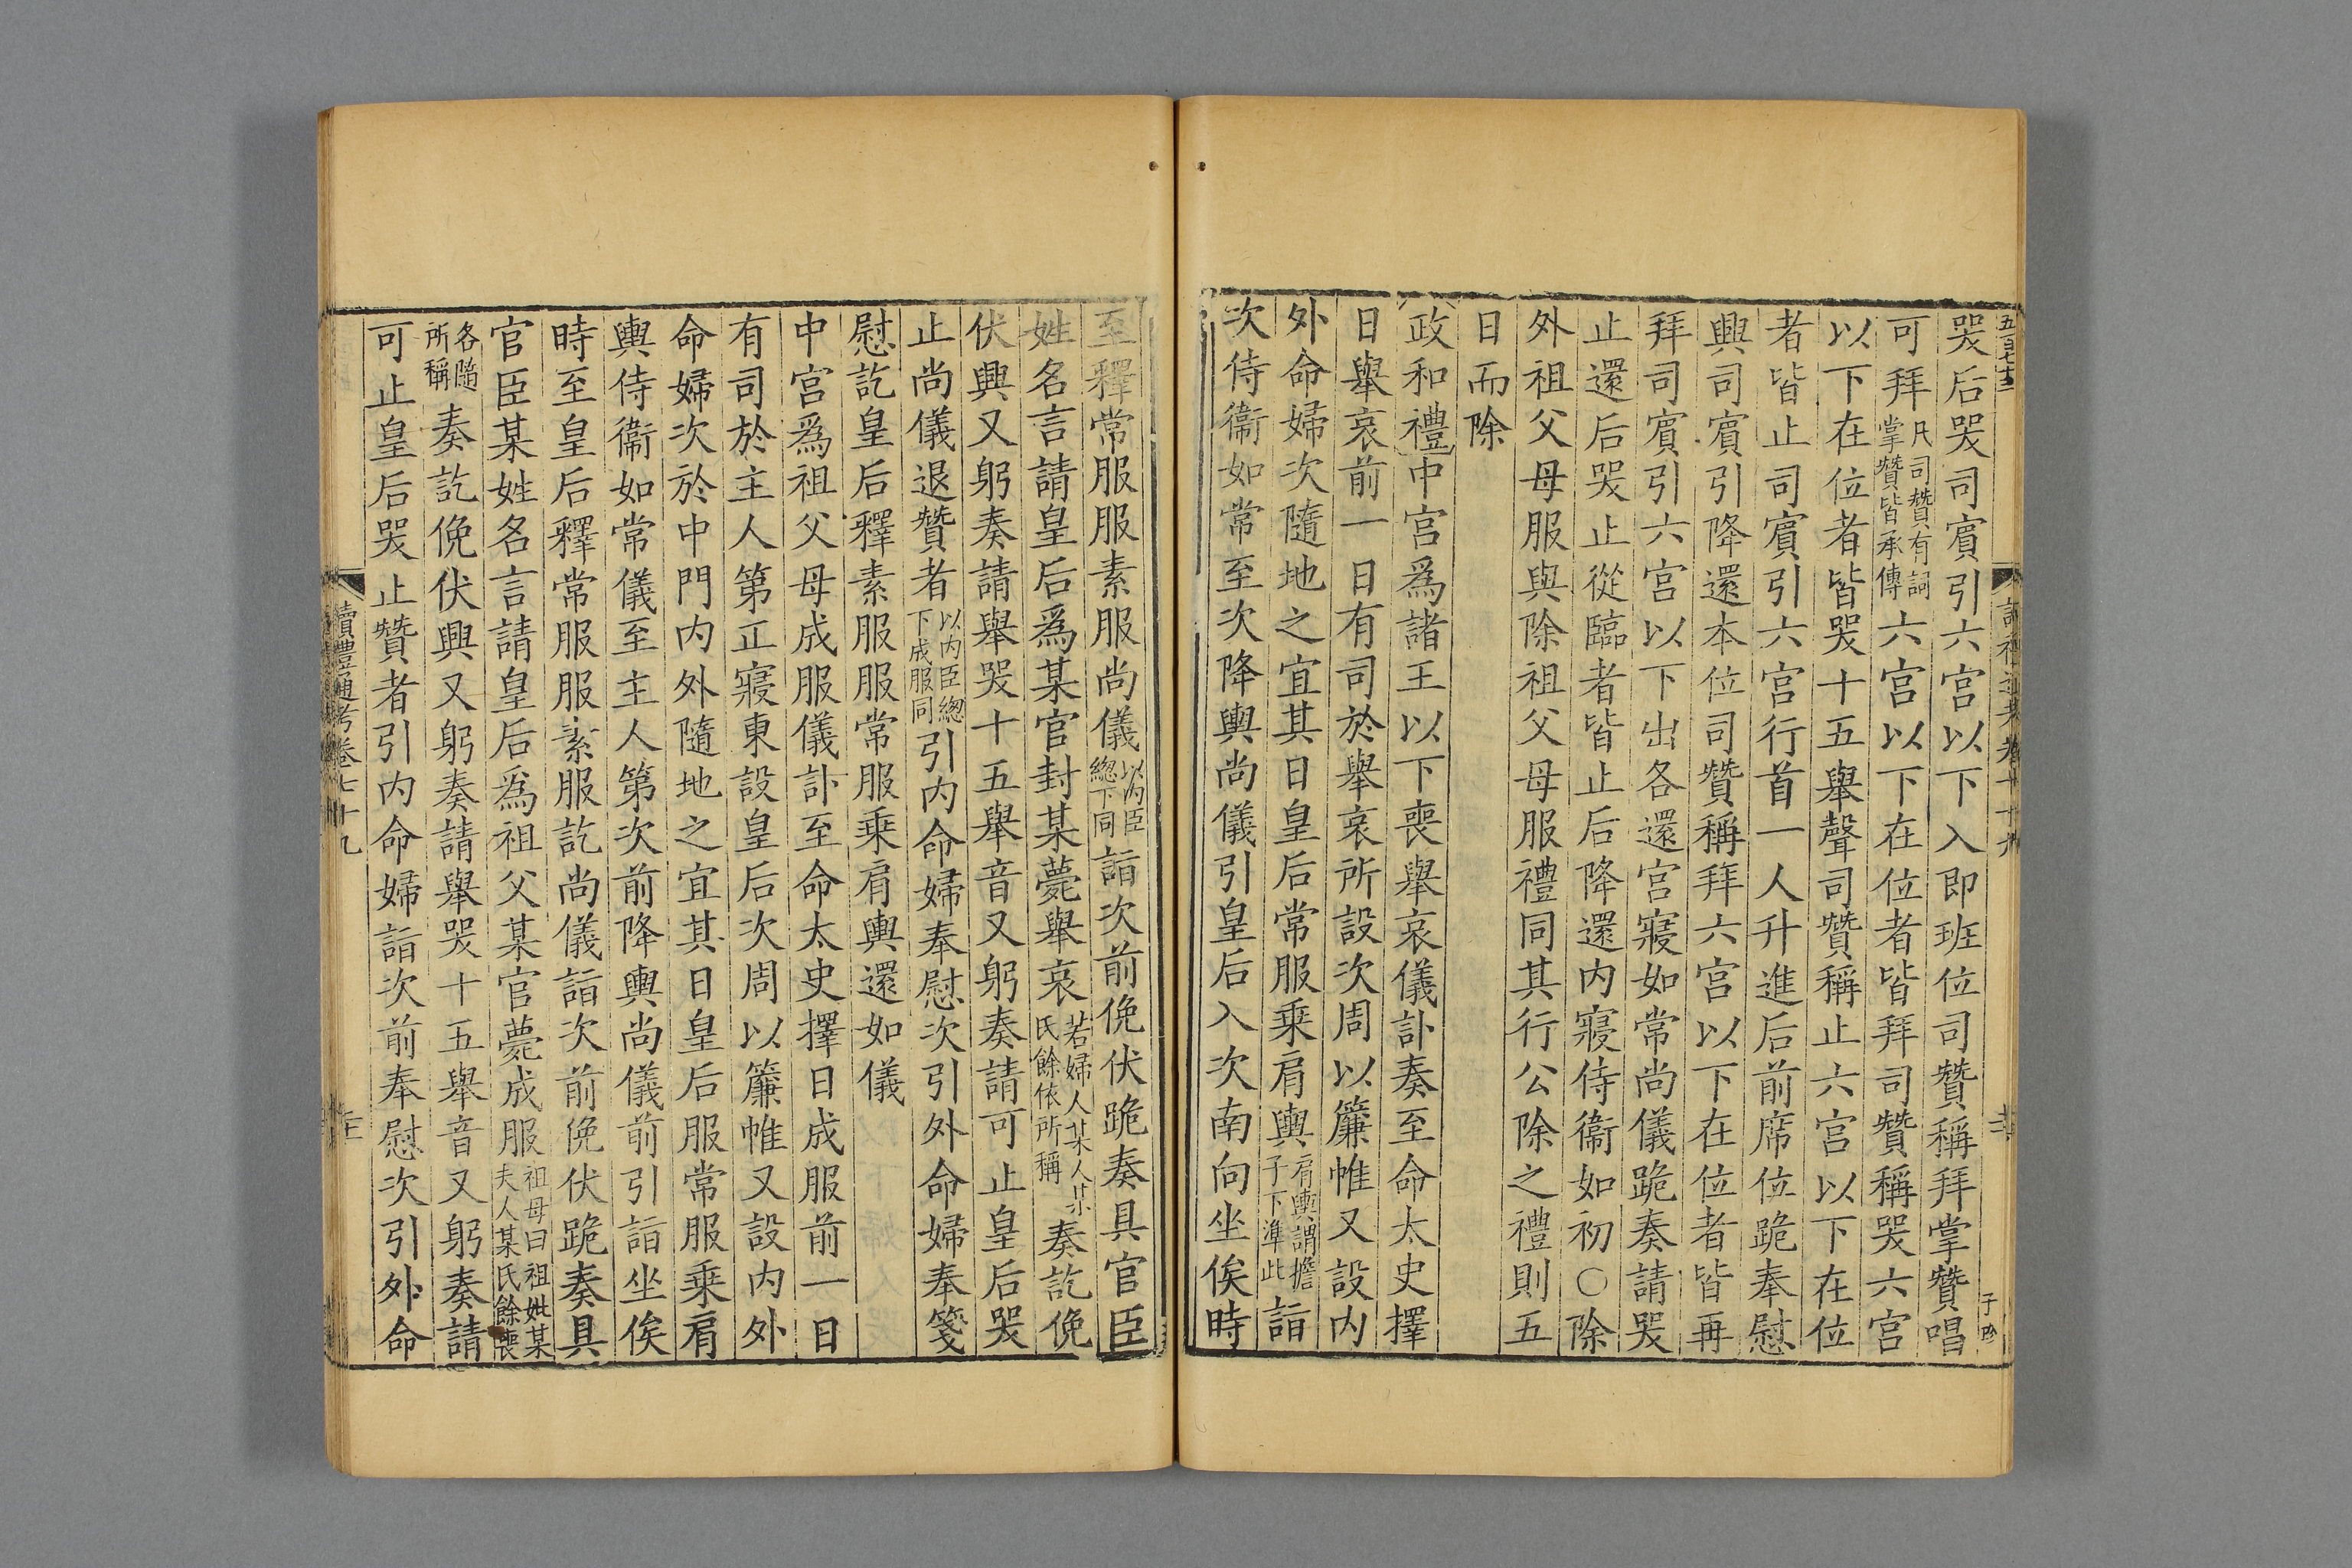 哭后哭司賔引六宫以下入即班位司贊稱拜掌贊唱
可拜凡司贊有詞掌贊皆承傳六宫以下在位者皆拜司贊稱哭六宫
以下在位者皆哭十五舉聲司贊稱止六宫以下在位
者皆止司賔引六宫行首一人升進后前席位跪奉慰
興司賔引降還本位司贊稱拜六宫以下在位者皆再
拜司賔引六宫以下出各還宫寢如常尚儀跪奏請哭
止還后哭止從臨者皆止后降還内寢侍衞如初○除
外祖父母服與除祖父母服禮同其行公除之禮則五
日而除
政和禮中宫爲諸王以下喪舉哀儀訃奏至命太史擇
日舉哀前一日有司於舉哀所設次周以簾帷又設内
外命婦次隨地之宜其日皇后常服乗肩輿肩輿謂擔子下準此詣
次侍衞如常至次降輿尚儀引皇后入次南向坐俟時
至釋常服服素服尚儀以内臣總下同詣次前俛伏跪奏具官臣
姓名言請皇后爲某官封某薨舉哀若婦人某人某氏餘依所稱奏訖俛
伏興又躬奏請舉哭十五舉音又躬奏請可止皇后哭
止尚儀退贊者以内臣總下成服同引内命婦奉慰次引外命婦奉箋
慰訖皇后釋素服服常服乗肩輿還如儀
中宫爲祖父母成服儀訃至命太史擇日成服前一日
有司於主人第正寢東設皇后次周以簾帷又設内外
命婦次於中門内外隨地之宜其日皇后服常服乗肩
輿侍衞如常儀至主人第次前降輿尚儀前引詣坐俟
時至皇后釋常服服素服訖尚儀詣次前俛伏跪奏具
官臣某姓名言請皇后爲祖父某官薨成服祖母曰祖姓某夫人某氏餘喪
各隨所稱奏訖俛伏興又躬奏請舉哭十五舉音又躬奏請
可止皇后哭止贊者引内命婦詣次前奉慰次引外命
續禮通考卷七十九